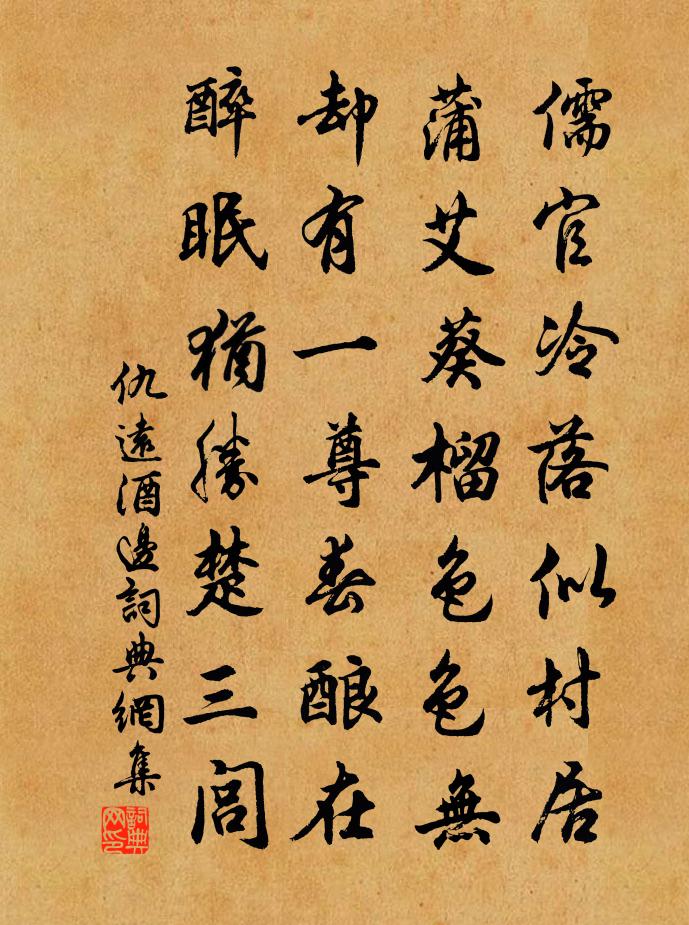 儒官冷落似村居
蒲艾葵榴色色無
却有一尊春酿在
醉眠猶勝楚三闾
仇遠酒邊詞典網集
詞典网印